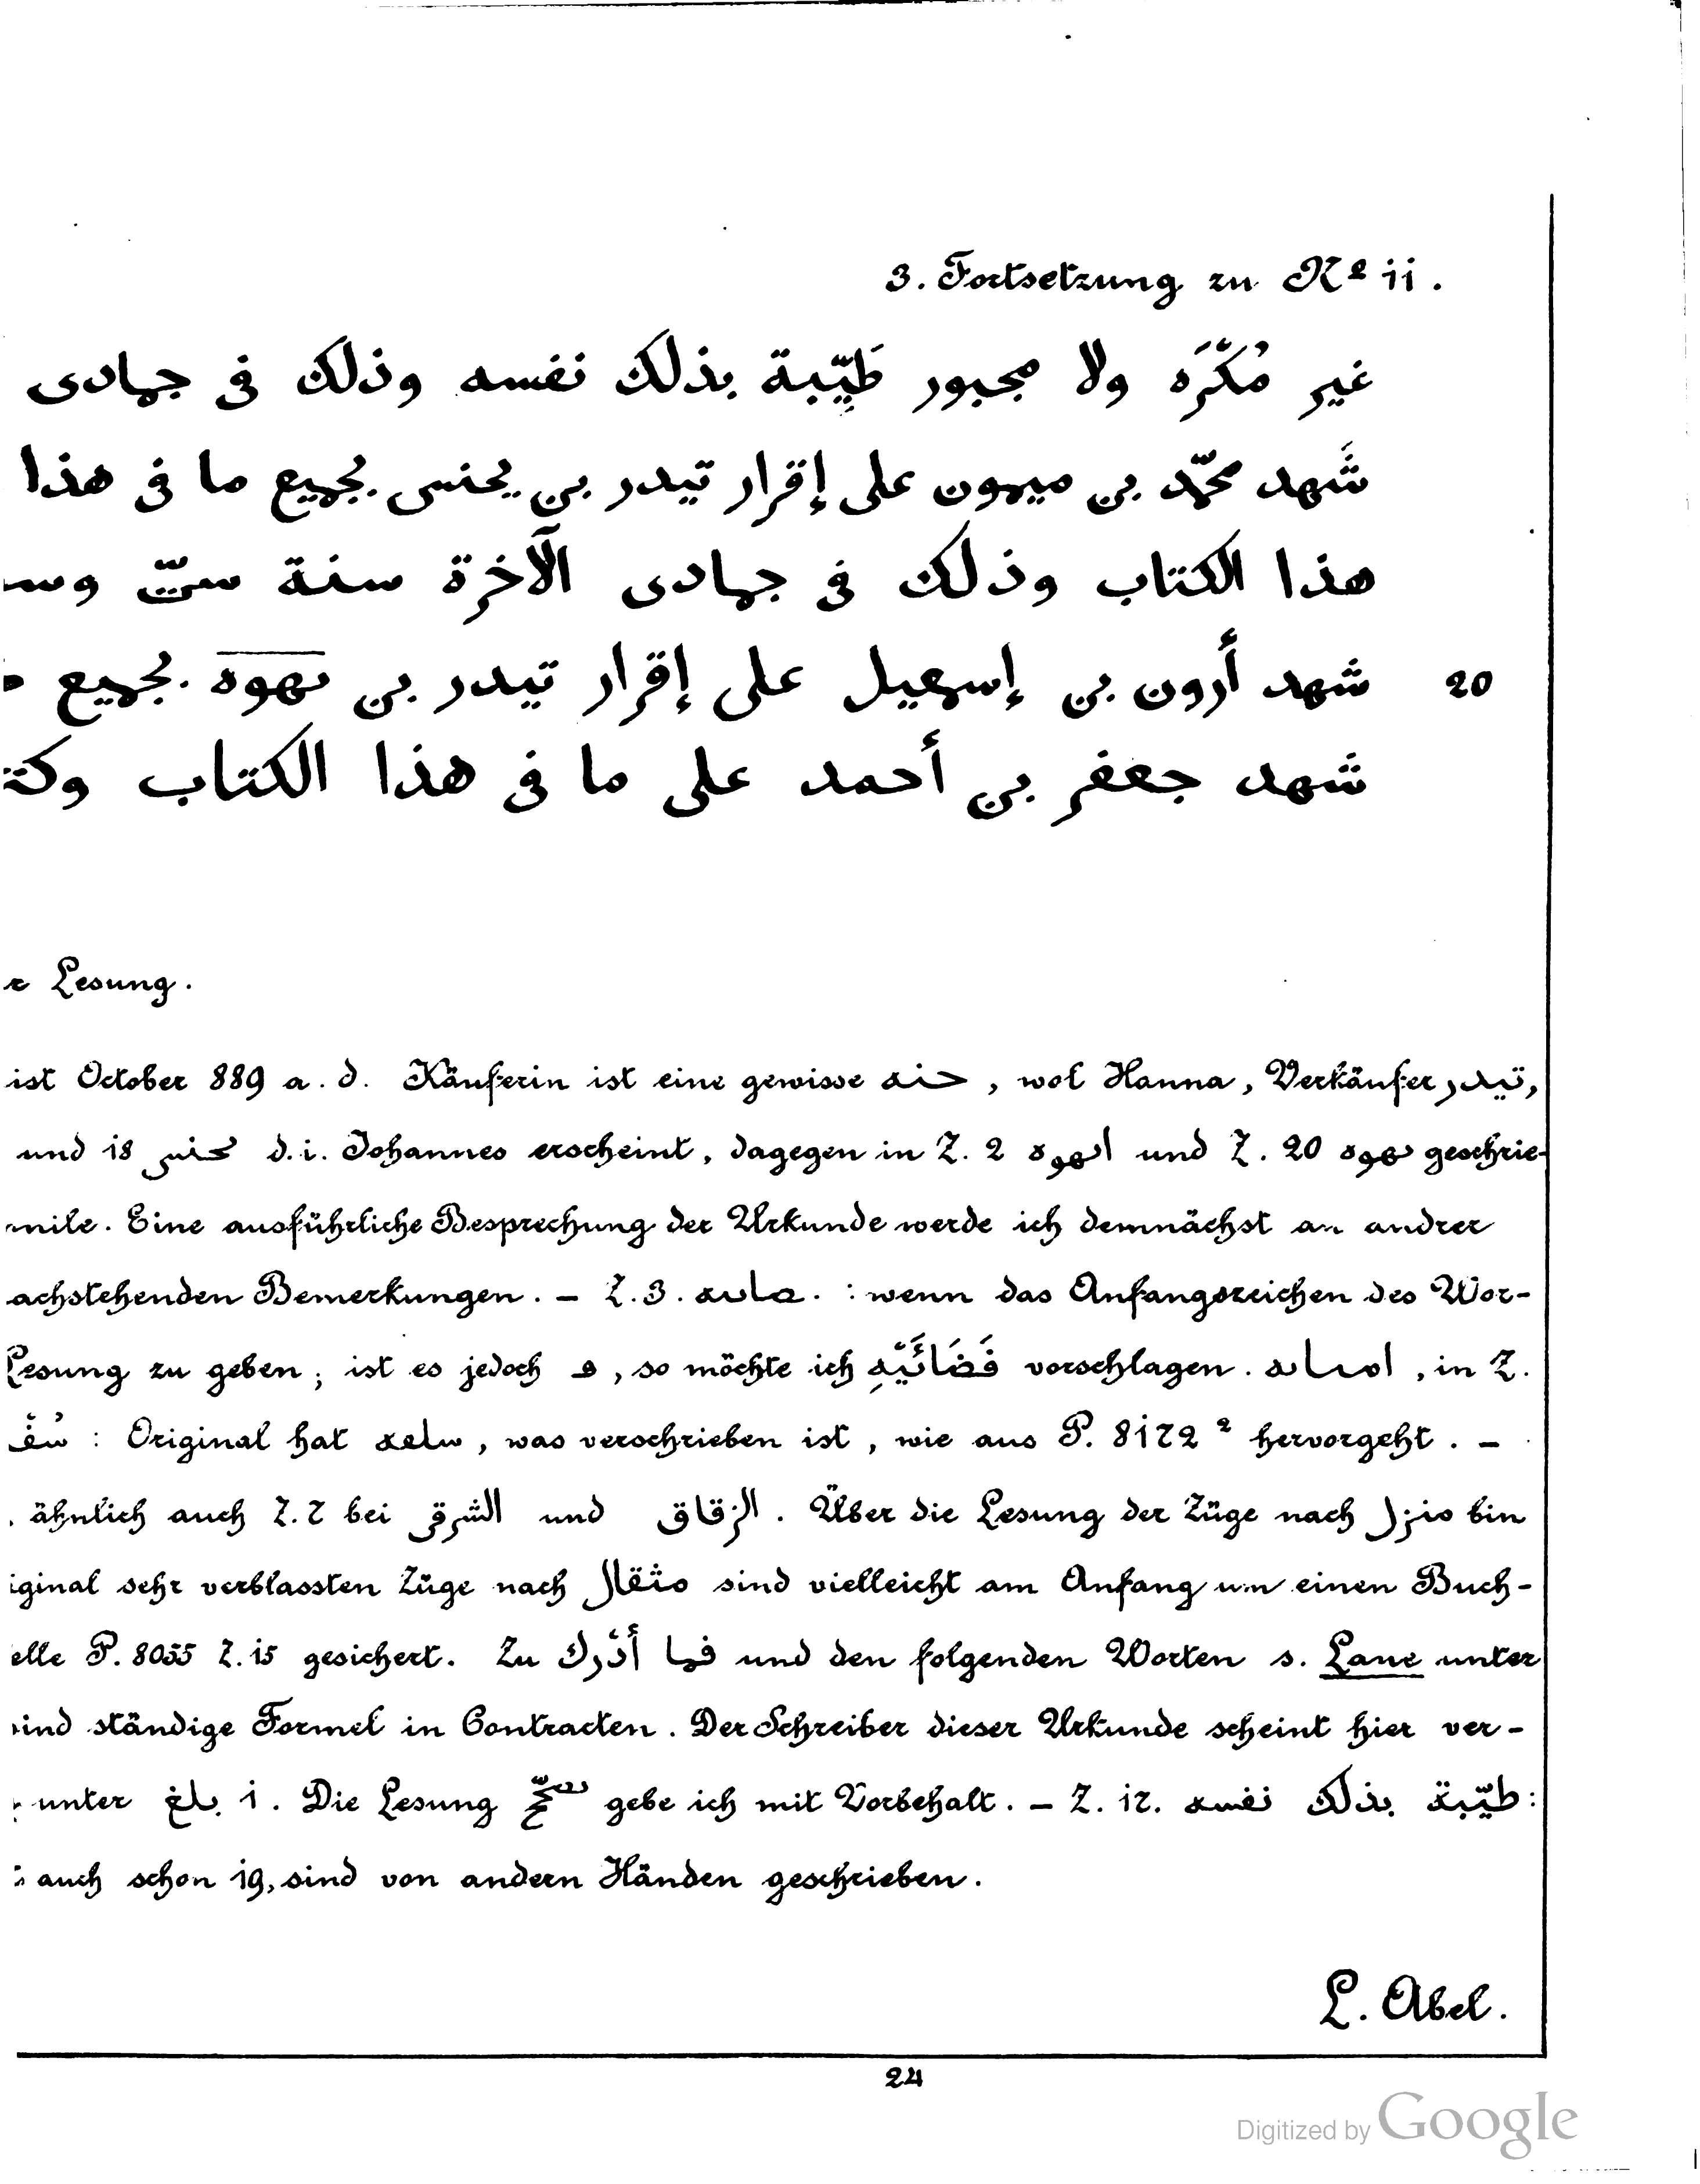 3. Fortsetzung zu Nº 11.
غير مُكَرَّه ولا مجبور طَيِّبة بذلك نفسه وذلك فى جمادى
شَهد محمّد بن ميمون على إقرار تيدر بن يحنس بجميع ما فى هذا
هذا الكتاب وذلك فى جمادى الآخرة سنة ستّ
20 شهد أرون بن إسمعيل على إقرار تيدر بن نهوه بجميع
شهد جعفر بن أحمد على ما فى هذا الكتاب
Lesung.
ist October 889 a. d. Käuferin ist eine gewisse حنه, wol Hanna, Verkäufer تيدر,
und 18 يحنس d. i. Johannes erscheint, dagegen in Z. 2 und Z. 20 نهوه geschrie-
mile. Eine ausführliche Besprechung der Urkunde werde ich demnächst an andrer
achstehenden Bemerkungen. – Z. 3. : wenn das Anfangszeichen des Wor-
Lesung zu geben; ist es jedoch ف, so möchte ich فَضَائَيْهِ vorschlagen. , in Z.
: Original hat , was verschrieben ist, wie aus P. 8172² hervorgeht. –
. ähnlich auch Z. 7 bei الشرقى und الزقاق. Über die Lesung der Züge nach منزل bin
iginal sehr verblassten Züge nach مثقال sind vielleicht am Anfang um einen Buch-
elle P. 8055 Z. 15 gesichert. Zu فما أدرك und den folgenden Worten s. Lane unter
ind ständige Formel in Contracten. Der Schreiber dieser Urkunde scheint hier ver-
unter بلغ 1. Die Lesung gebe ich mit Vorbehalt. – Z. 17. طيّبة بذلك نفسه:
auch schon 19, sind von andern Händen geschrieben.
L. Abel.
24
Digitized by Google